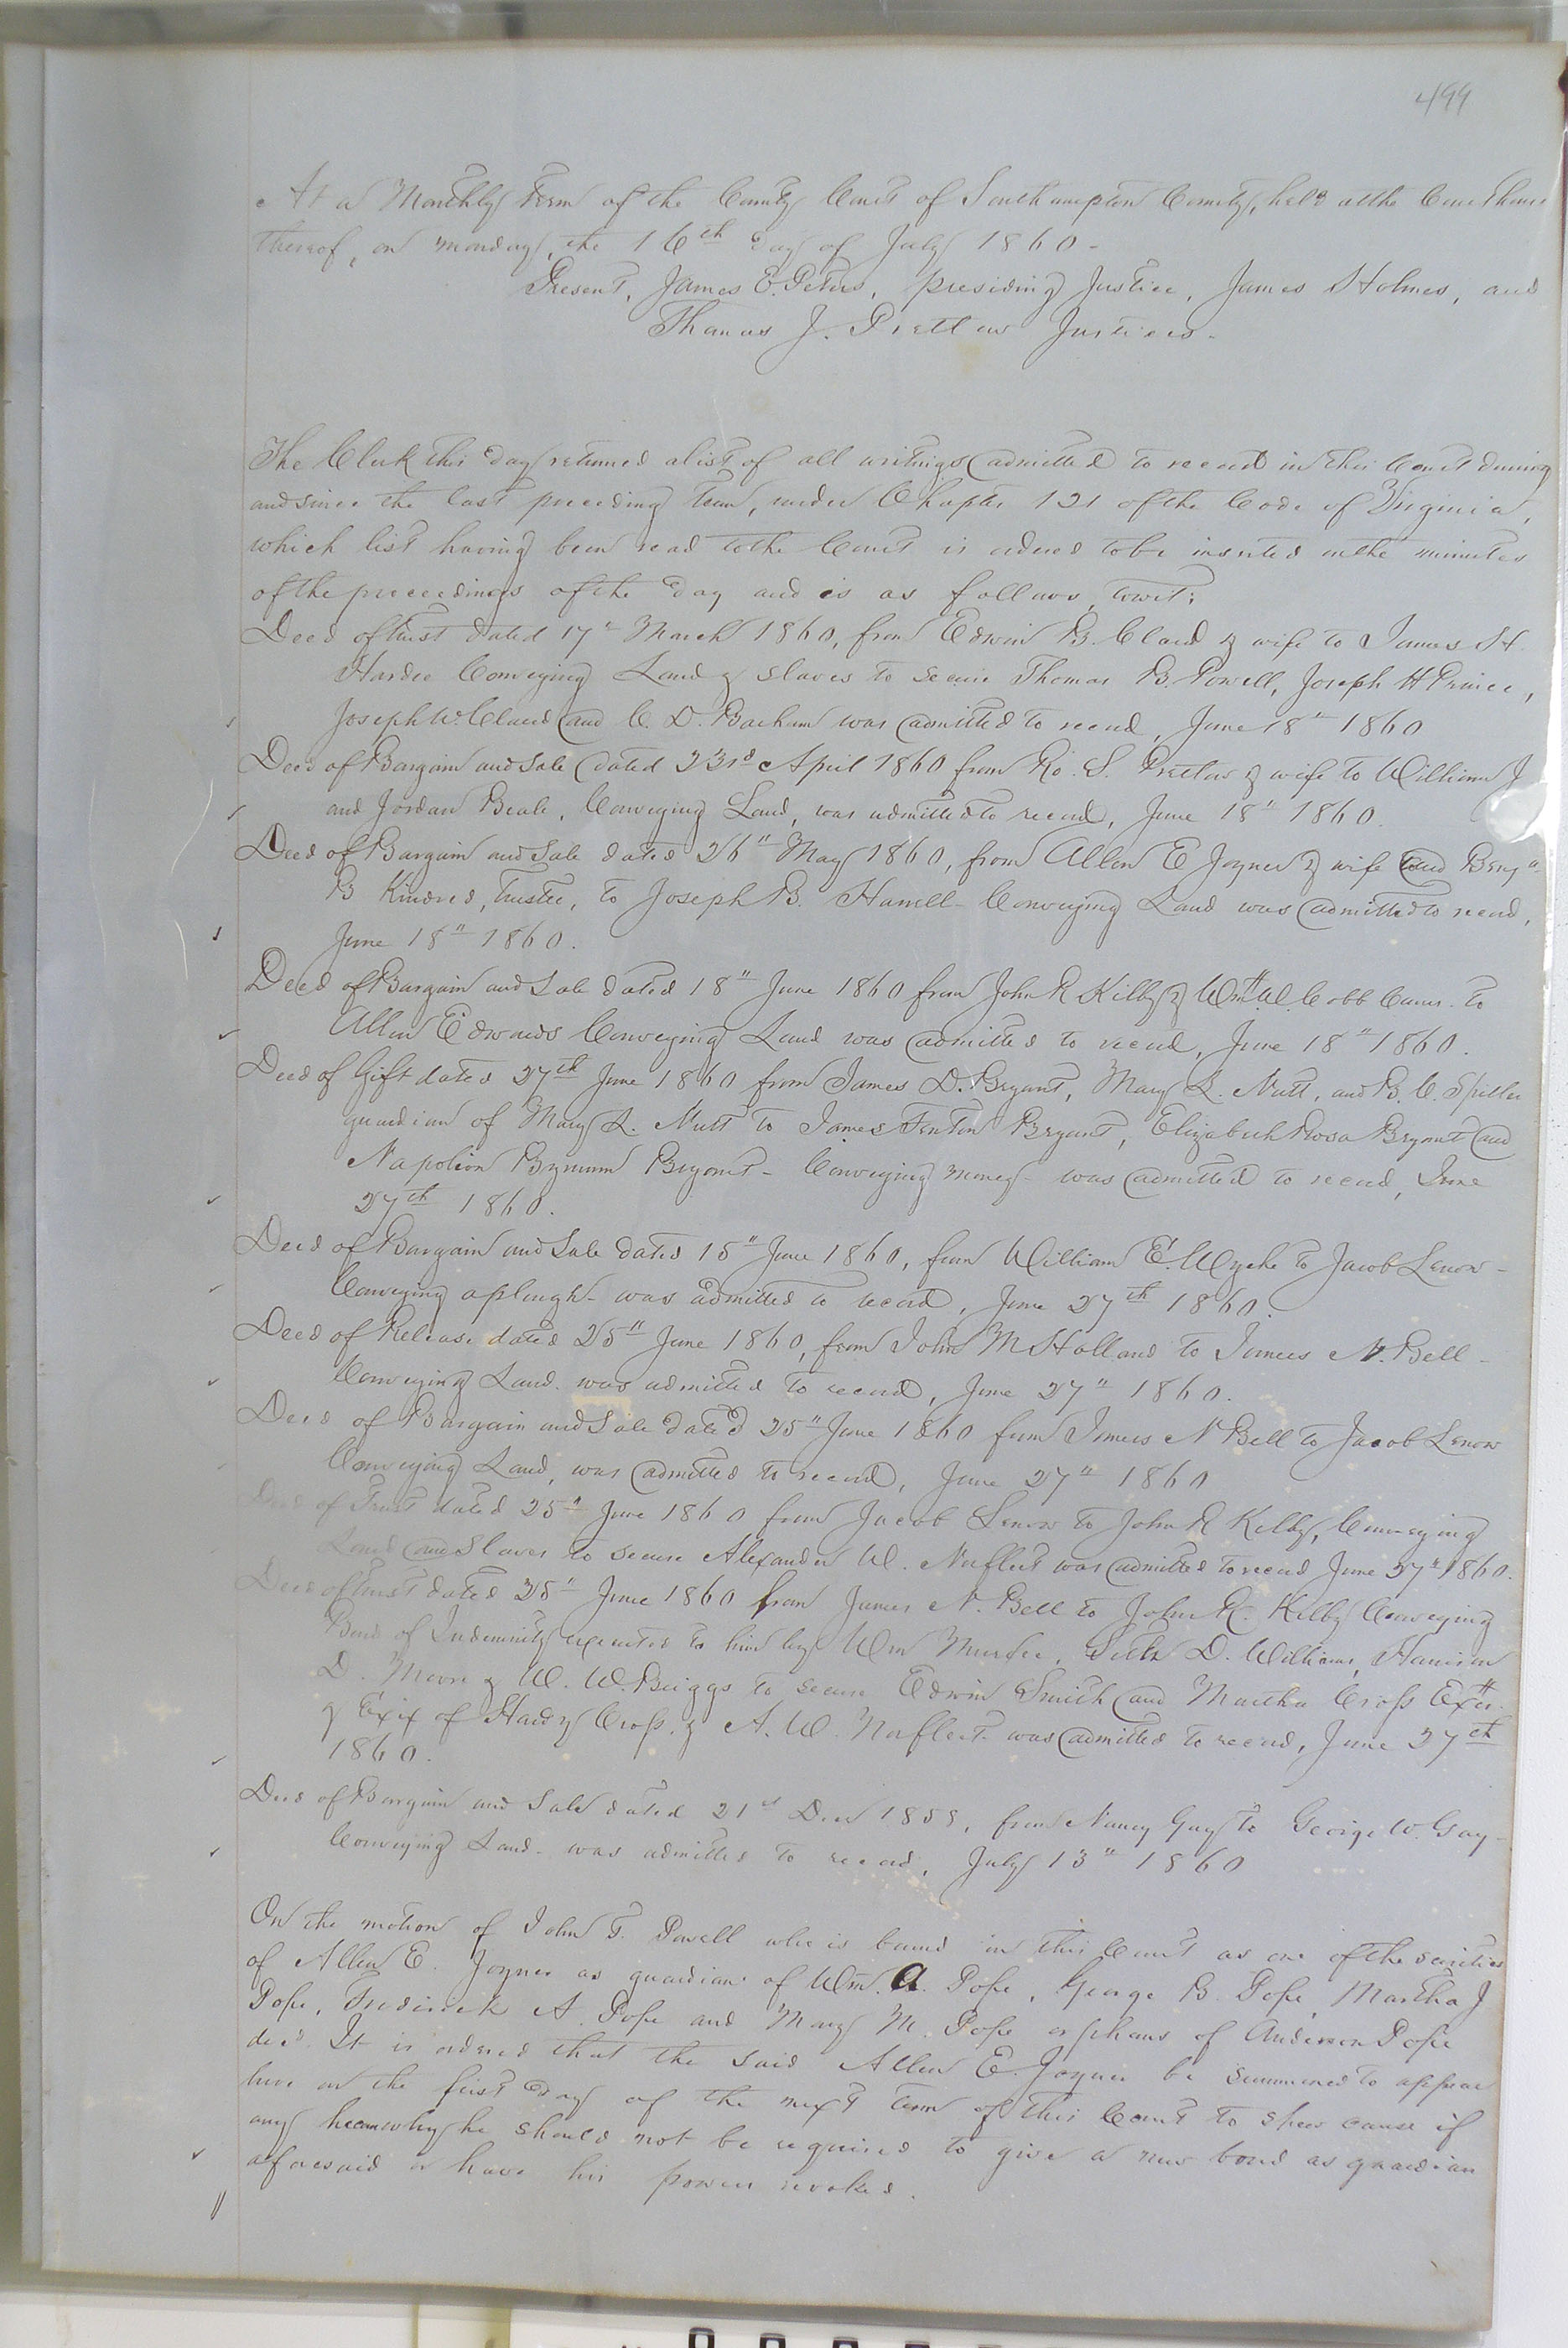 499
At a Monthly Term of the County Court of Southampton County, held at the Courthouse
thereof, on Monday, the 16th day of July 1860 -
Present, James E. Peters, presiding Justice, James Holmes, and
Thomas J. Pretlow Justices.
The Clerk this day returned a list of all writings admitted to record in this Court during
and since the last preceding term, under Chapter 121 of the Code of Virginia,
which list having been read to the Court is ordered to be inserted in the minutes
of the proceedings of the day and is as follows, towit:
Deed of trust dated 17th March 1860, from Edwin B. Claud & wife to James H.
Hardee Conveying Land & slaves to secure Thomas B. Powell, Joseph H Prince,
Joseph W. Claud and C. D. Barham was admitted to record, June 18" 1860
Deed of Bargain and Sale dated 23rd April 1860 from Ro. S. Pretlow & wife to William J
and Jordan Beale, Conveying Land, was admitted to record, June 18" 1860.
Deed of Bargain and Sale dated 26" May 1860, from Allen E Joyner & wife and Benj"
B Kindred, Trustee, to Joseph B. Harrell - Conveying Land was admitted to record,
June 18" 1860.
Deed of Bargain and Sale dated 18" June 1860 from John R Kilby & Wm W. Cobb Comrs. to
Allen Edwards Conveying Land was admitted to record, June 18" 1860.
Deed of Gift dated 27th June 1860 from James D. Bryant, Mary L. Nutt, and B. C. Spiller
guardian of Mary L. Nutt to James Fenton Bryant, Elizabeth Rosa Bryant and
Napolion Bynum Bryant - Conveying money - was admitted to record, June
27th 1860.
Deed of Bargain and Sale dated 15" June 1860, from William E. Wyche to Jacob Lenow -
Conveying a plough - was admitted to record, June 27th 1860.
Deed of Release dated 25" June 1860, from John M Holland to James N. Bell -
Conveying Land. was admitted to record, June 27" 1860.
Deed of Bargain and Sale dated 25" June 1860 from James N Bell to Jacob Lenow
Conveying Land, was admitted to record, June 27" 1860
Deed of Trust dated 25" June 1860 from Jacob Lenow to John R Kilby, Conveying
Land and Slaves to secure Alexander W. Norfleet was admitted to record June 27" 1860.
Deed of trust dated 25" June 1860 from James N. Bell to John R. Kilby Conveying
Bond of Indemnity executed to him by Wm Murfee, D. Williams, Harrison
D. Moore & W. W. Briggs to secure Edwin Smith and Martha Cross Exr.
& Exix of Hardy Cross, & A. W. Norfleet was admitted to record, June 27th
1860.
Deed of Bargain and Sale dated 21st Decr 1859, from Nancy Gay to George W. Gay -
Conveying Land - was admitted to record, July 13" 1860
On the motion of John T. Powell who is bound in this Court as one of the securities
of Allen E. Joyner as guardian of Wm. A. Pope, George B. Pope, Martha J
Pope, Frederick A. Pope and Mary M. Pope orphans of Anderson Pope
decd. It is ordered that the said Allen E. Joyner be summoned to appear
here on the first day of the next term of this Court to shew cause if
any he can why he should not be required to give a new bond as guardian
aforesaid or have his powers revoked.